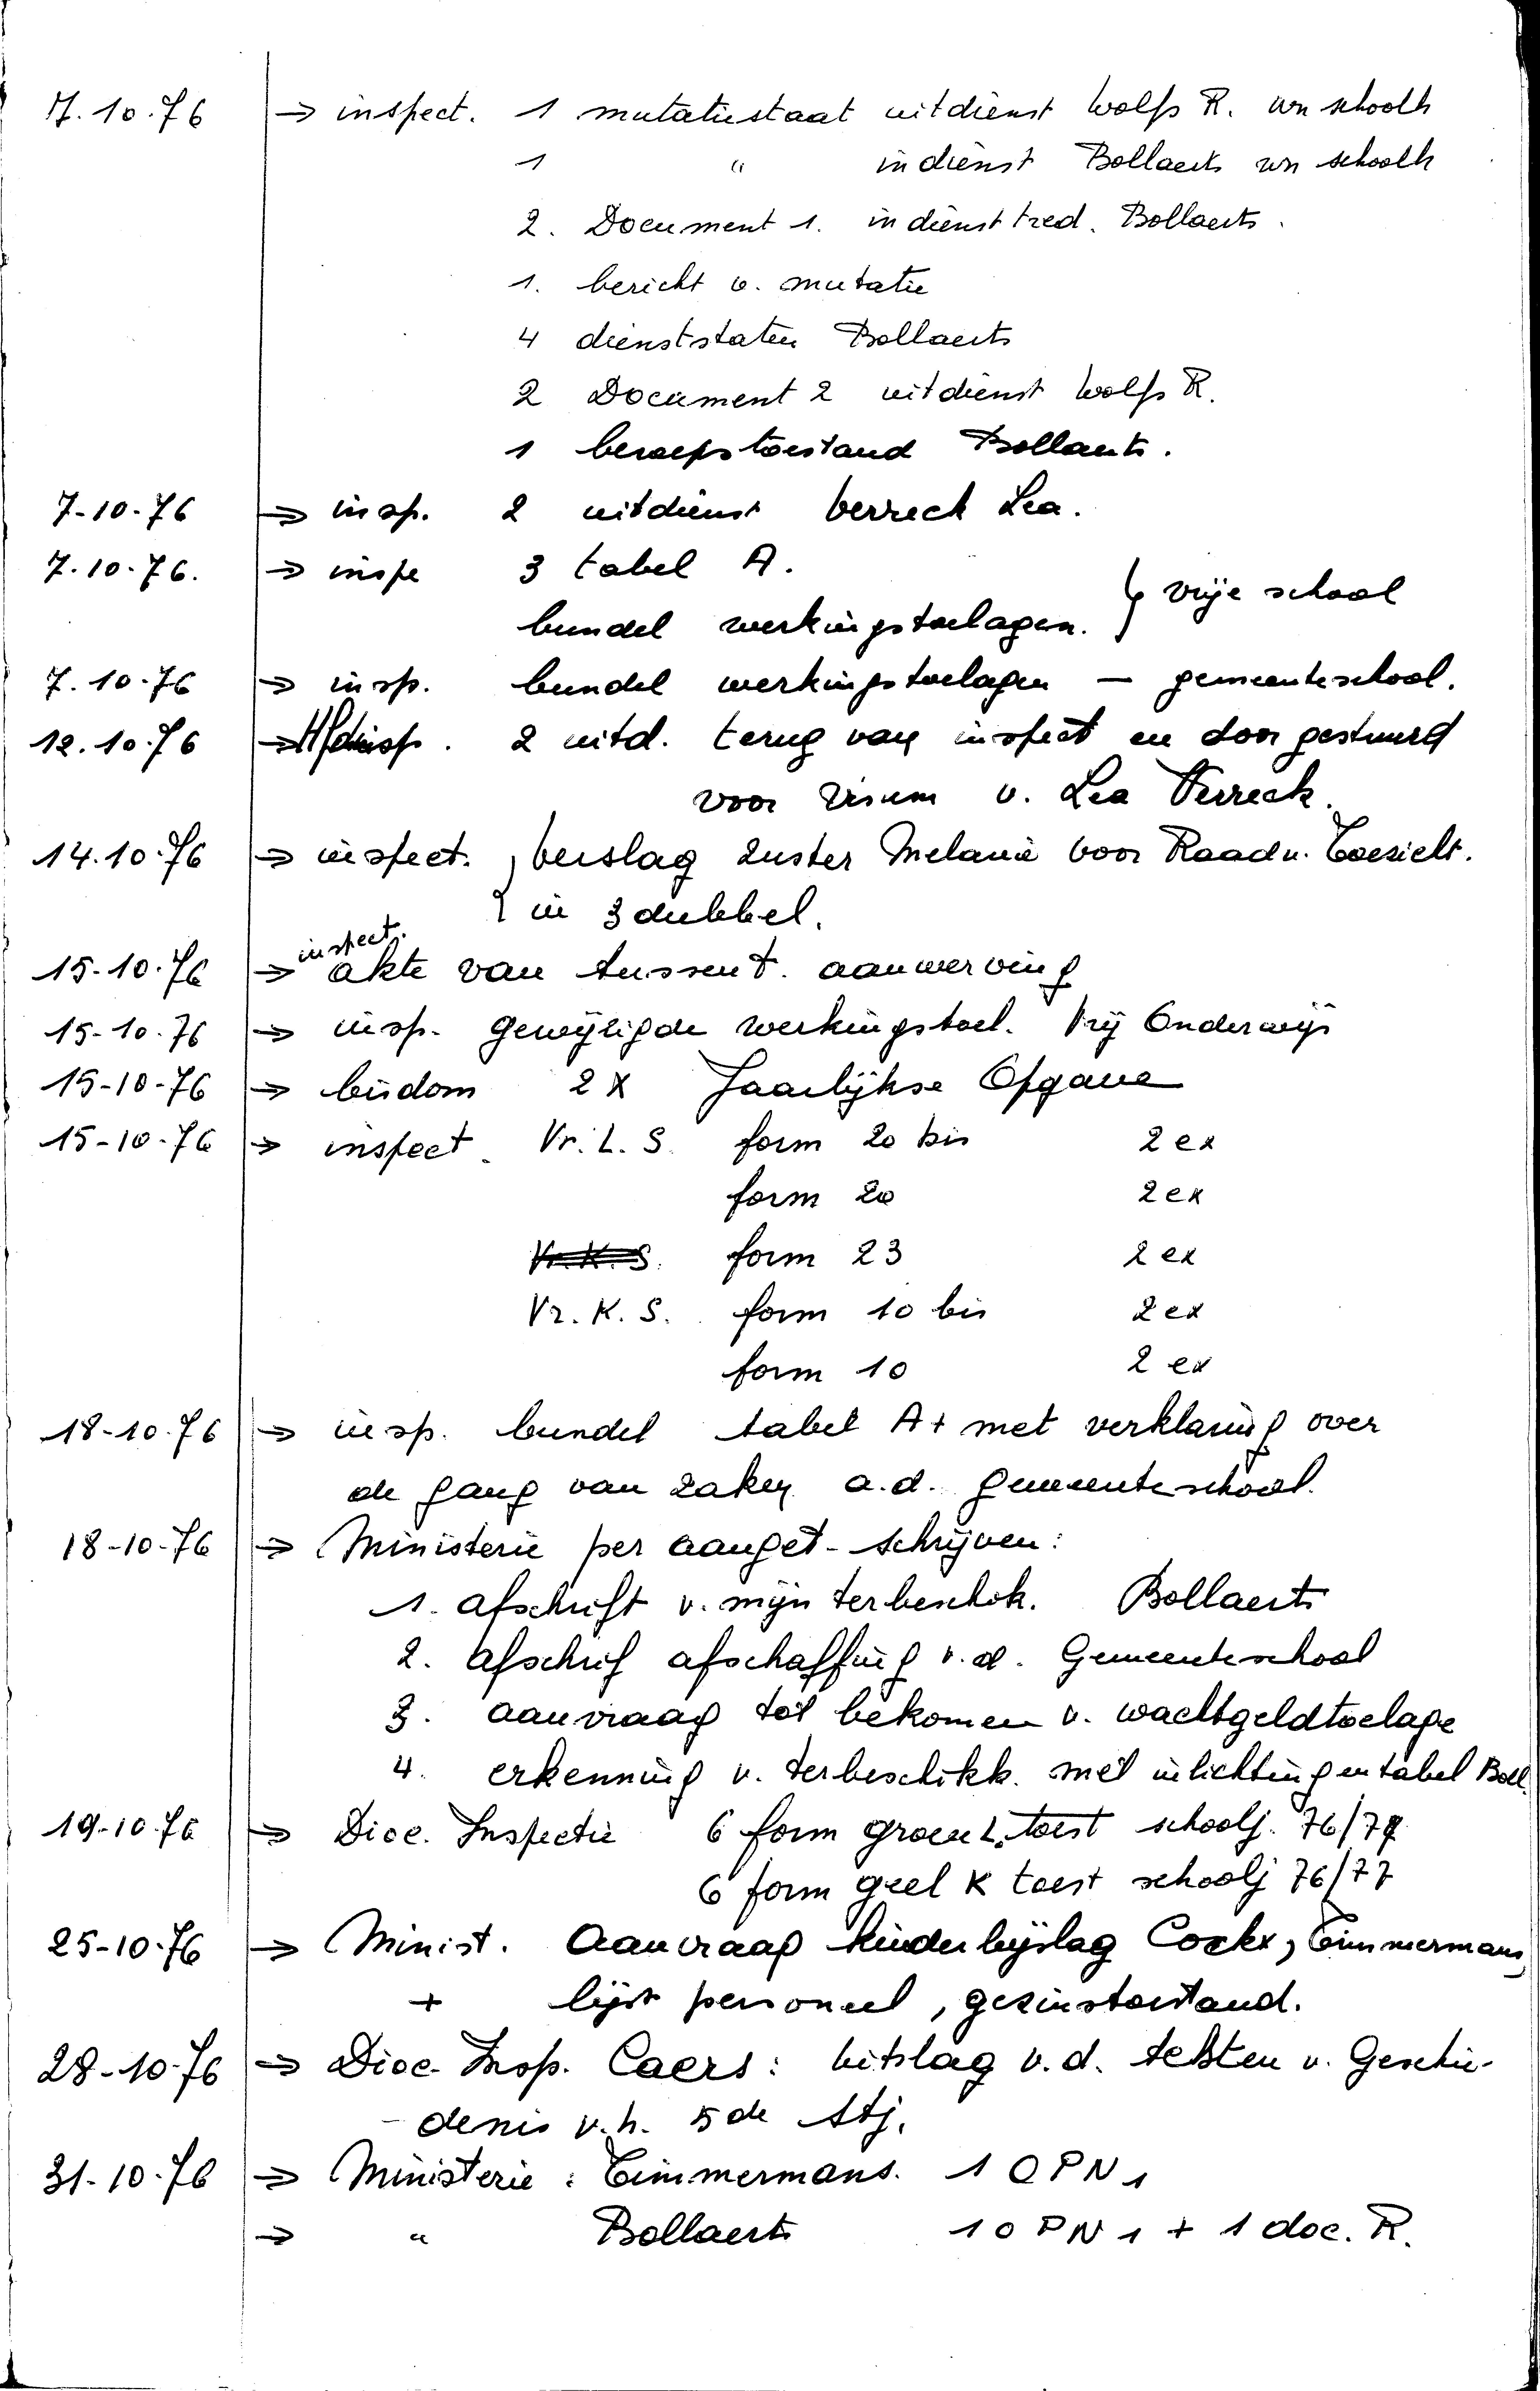 7.10.76 → inspect. 1 mutatiestaat uitdienst Wolfs R. wn schoolh
1 " indienst Bollaerts wn schoolh
2. Document 1. indiensttred. Bollaerts.
1. bericht v. mutatie
4 dienststaten Bollaerts
2 Document 2 uitdienst Wolfs R.
1 beroepstoestand Bollaerts.
7-10-76 → insp. 2 uitdienst Verreck Lea.
7.10.76. → inspe 3 tabel A.
bundel werkingstoelagen. } vrije school
7.10.76 → insp. bundel werkingstoelagen — gemeenteschool.
12.10.76 → Hfdinsp. 2 uitd. terug van inspect en doorgestuurd
voor visum v. Lea Verreck.
14.10.76 → inspect. } verslag Zuster Melanie voor Raad v. Toezicht.
in 3 dubbel.
inspect.
15-10.76 → akte van tussent. aanwerving
15-10.76 → insp. gewijzigde werkingstoel. Vrij Onderwijs
15-10-76 → bisdom 2 X Jaarlijkse Opgave
15-10-76 → inspect. Vr. L. S. form 20 bis 2 ex
form 20 2 ex
Vr. K. S. form 23 2 ex
Vr. K. S. form 10 bis 2 ex
form 10 2 ex
18-10.76 → insp. bundel tabel A+ met verklaring over
de gang van zaken a.d. gemeenteschool.
18-10-76 → Ministerie per aanget- schrijven:
1. afschrift v. mijn terbeschik. Bollaerts
2. afschrif afschaffing v.d. Gemeenteschool
3. aanvraag tot bekomen v. wachtgeldtoelage
4. erkenning v. terbeschikk. met inlichtingentabel Boll.
19-10-76 → Dioc. Inspectie 6 form groen L. toest schoolj. 76/77
6 form geel K toest schoolj 76/77
25-10-76 → Minist. Aanvraag kinderbijslag Cockx, Timmermans,
+ lijst personeel, gezinstoestand.
28-10-76 → Dioc. Insp. Caers: uitslag v.d. testen v. Geschie-
-denis v.h. 5de stj.
31-10-76 → Ministerie: Timmermans. 1 O P N 1
→ " Bollaerts 1 O P N 1 + 1 doc. R.